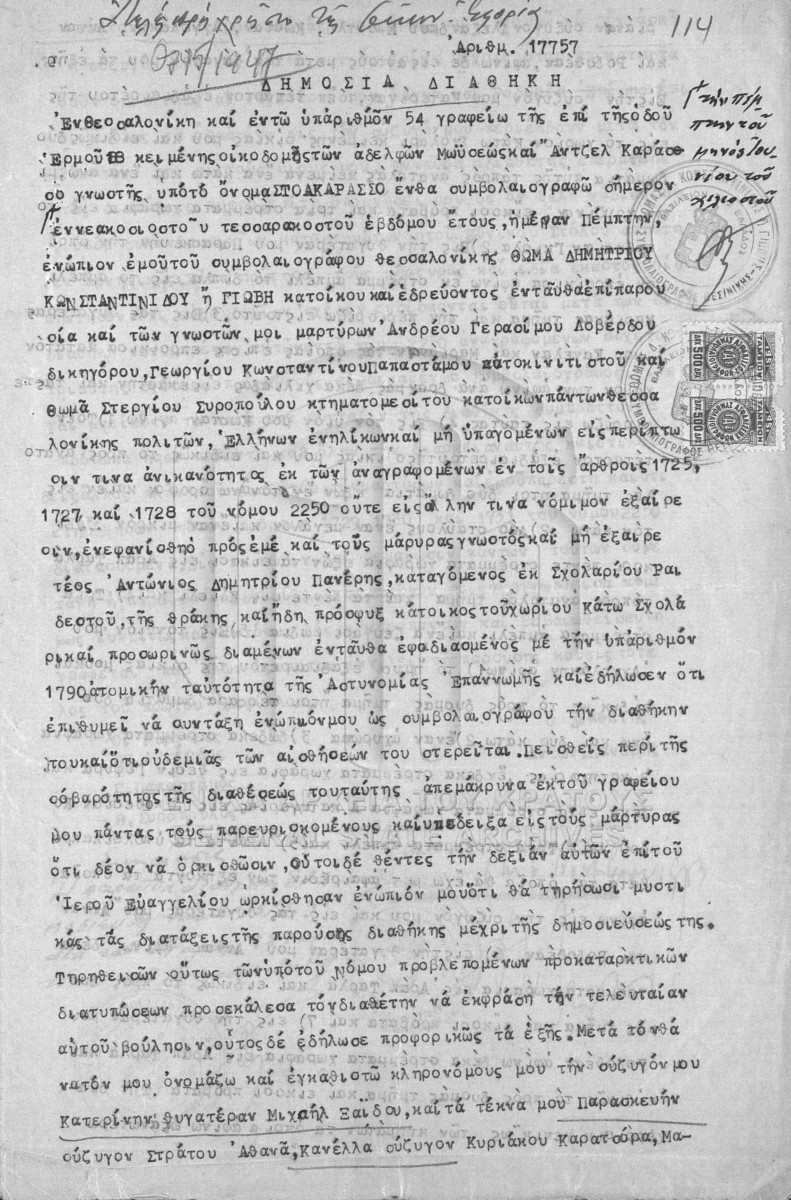 114
Ἀριθμ. 17757
ΔΗΜΟΣΙΑ ΔΙΑΘΗΚΗ
Ἐνθεσσαλονίκη καί ἐντῶ ὑπάριθμόν 54 γραφείω τῆς ἐπί τῆςὁδοῦ
Ἑρμοῦ 18 κειμένης οἰκοδομῆςτῶν ἀδελφῶν Μωϋσέωςκαί Ἀντζελ Καράσ
σο γνωστῆς ὑπότό ὄνομαΣΤΟΑΚΑΡΑΣΣΟ ἔνθα συμβολαιογραφῶ σήμερον
τήν πέμ
πτην τοῦ
μηνός Ἰου
νίου τοῦ
χιλιοστοῦ
ἐννεακοσιοστοῦ τεσσαρακοστοῦ ἑβδόμου ἔτους, ἡμέραν Πέμπτην,
ἐνώπιον ἐμοῦτοῦ συμβολαιογράφου θεσσαλονίκης ΘΩΜΑ ΔΗΜΗΤΡΙΟΥ
ΚΩΝΣΤΑΝΤΙΝΙΔΟΥ ἤ ΓΙΩΒΗ κατοίκουκαίἑδρεύοντος ἐνταῦθαἐπίπαρου
σία καί τῶν γνωστῶν μοι μαρτύρων Ἀνδρέου Γερασίμου Λοβέρδου
δικηγόρου, Γεωργίου ΚωνσταντίνουΠαπαστάμου πατοκινιτιστοῦ καί
θωμᾶ Στεργίου Συροπούλου κτηματομεσίτου κατοίκωνπάντωνθεσσα
λονίκης πολιτῶν, Ἑλλήνων ἐνηλίκωνκαί μή ὑπαγομένων εἰςπερίπτω
σιν τινα ἀνικανότητος ἐκ τῶν ἀναγραφομένων ἐν τοῖς ἄρθροις 1725,
1727 καί 1728 τοῦ νόμου 2250 οὔτε εἰςἄλλην τινα νόμιμον ἐξαίρε
σιν, ἐνεφανίσθηό πρόςἐμέ καί τούς μάρυραςγνωστόςκαί μή ἐξαιρε
τέος Ἀντώνιος Δημητρίου Πανέρης, καταγόμενος ἐκ Σχολαρίου Ραι
δεστοῦ, τῆς θράκης καίἤδη πρόσφυξ κάτοικοςτοῦχωρίου Κάτω Σχολά
ρικαί προσωρινῶς διαμένων ἐνταῦθα ἐφωδιασμένος μέ τήν ὑπάριθμόν
1790ἀτομικήν ταὐτότητα τῆς Ἀστυνομίας Ἐπανωμῆς καίἐδήλωσεν ὅτι
ἐπιθυμεῖ νά συντάξη ἐνώπιόνμου ὡς συμβολαιογράφου τήν διαθήκην
τουκαίὅτιοὐδεμιᾶς τῶν αἰσθήσεών του στερεῖται. Πεισθείς περίτῆς
σοβαρότητοςτῆς διαθέσεώς τουταύτης ἀπεμάκρυνα ἐκτοῦ γραφείου
μου πάντας τούς παρευρισκομένους καίὑπέδειξα εἰςτούς μάρτυρας
ὅτι δέον νά ὁρκισθῶσιν, Οὗτοιδέ θέντες τήν δεξιάν αὐτῶν ἐπίτοῦ
Ἱεροῦ Εὐαγγελίου ὡρκίσθησαν ἐνώπιόν μουὅτι θά τηρήσωσι μυστι
κάς τάς διατάξειςτῆς παρούσης διαθήκης μέχριτῆς δημοσιεύσεώςτης.
Τηρηθεισῶν οὕτως τῶνὑπότοῦ Νόμου προβλεπομένων προκαταρκτικῶν
διατυπώσεων προσεκάλεσα τόνδιαθέτην νά ἐκφράση τήν τελευταίαν
αὐτοῦ βούλησιν, οὗτοςδέ ἐδήλωσε προφορικῶς τά ἑξῆς. Μετά τόνθά
νατόν μου ὀνομάζω καί ἐγκαθιστῶ κληρονόμους μου τήν σύζυγόνμου
Κατερίνην θυγατέραν Μιχαήλ Ξαίδου, καίτά τέκνα μου Παρασκευήν
σύζυγον Στράτου Ἀθανᾶ, Κανέλλα σύζυγον Κυριάκου Καρατσόρα, Μα-